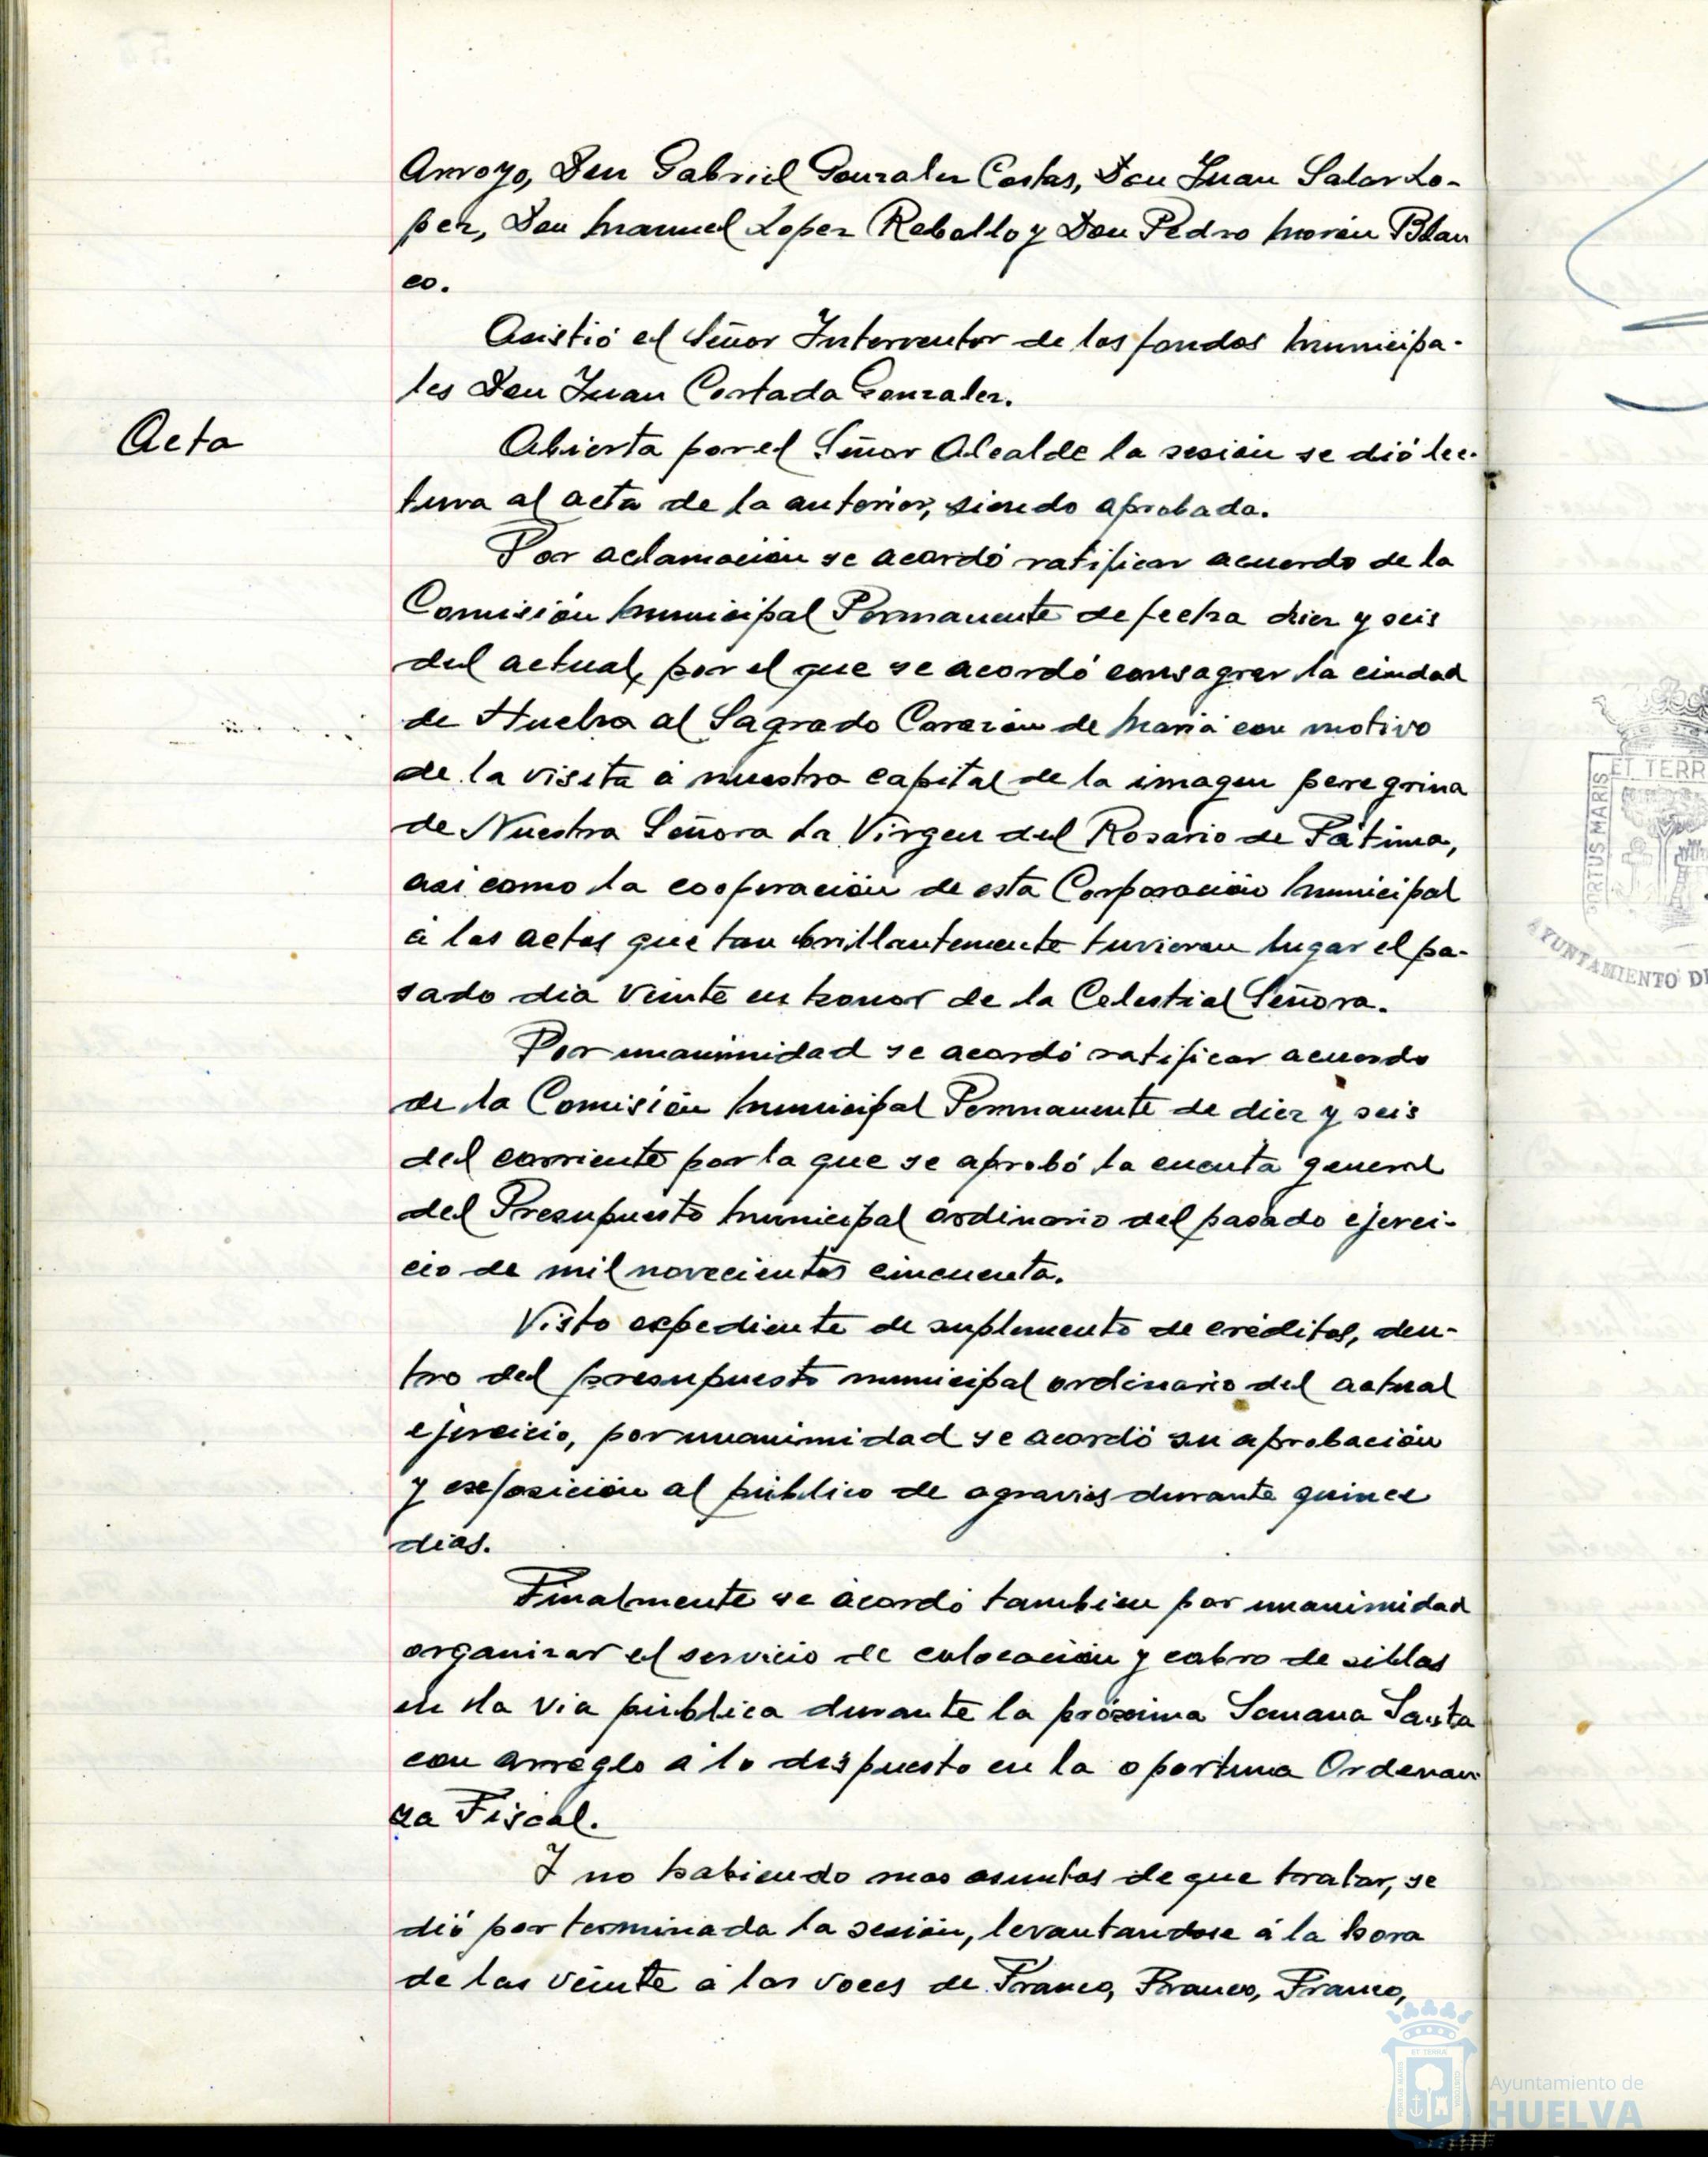 Arroyo, Don Gabriel Gonzalez Costas, Don Juan Salas Lo-
pez, Don Manuel Lopez Rebollo y Don Pedro Morón Blan
co.
Asistió el Señor Interventor de los fondos Municipa-
les Don Juan Cortada Gonzalez.
Acta
Abierta por el Señor Alcalde la sesión se dió lec-
tura al acta de la anterior, siendo aprobada.
Por aclamación se acordó ratificar acuerdo de la
Comisión Municipal Permanente de fecha diez y seis
del actual, por el que se acordó consagrar la ciudad
de Huelva al Sagrado Corazón de María con motivo
de la visita a nuestra capital de la imagen peregrina
de Nuestra Señora la Virgen del Rosario de Fátima,
asi como la cooperación de esta Corporación Municipal
á los actos que tan brillantemente tuvieron lugar el pa-
sado dia veinte en honor de la Celestial Señora.
Por unanimidad se acordó ratificar acuerdo
de la Comisión Municipal Permanente de diez y seis
del corriente por la que se aprobó la cuenta general
del Presupuesto Municipal ordinario del pasado ejerci-
cio de mil novecientos cincuenta.
Visto expediente de suplemento de créditos, den-
tro del presupuesto municipal ordinario del actual
ejercicio, por unanimidad se acordó su aprobación
y exposición al público de agravios durante quince
dias.
Finalmente se acordó tambien por unanimidad
organizar el servicio de colocación y cobro de sillas
en la via pública durante la próxima Semana Santa
con arreglo a lo dispuesto en la oportuna Ordenan
za Fiscal.
Y no habiendo mas asuntos de que tratar, se
dió por terminada la sesión, levantandose á la hora
de las veinte a las voces de Franco, Franco, Franco,
ET TERR
PORTUS MARIS
AYUNTAMIENTO DE
Ayuntamiento de
HUELVA